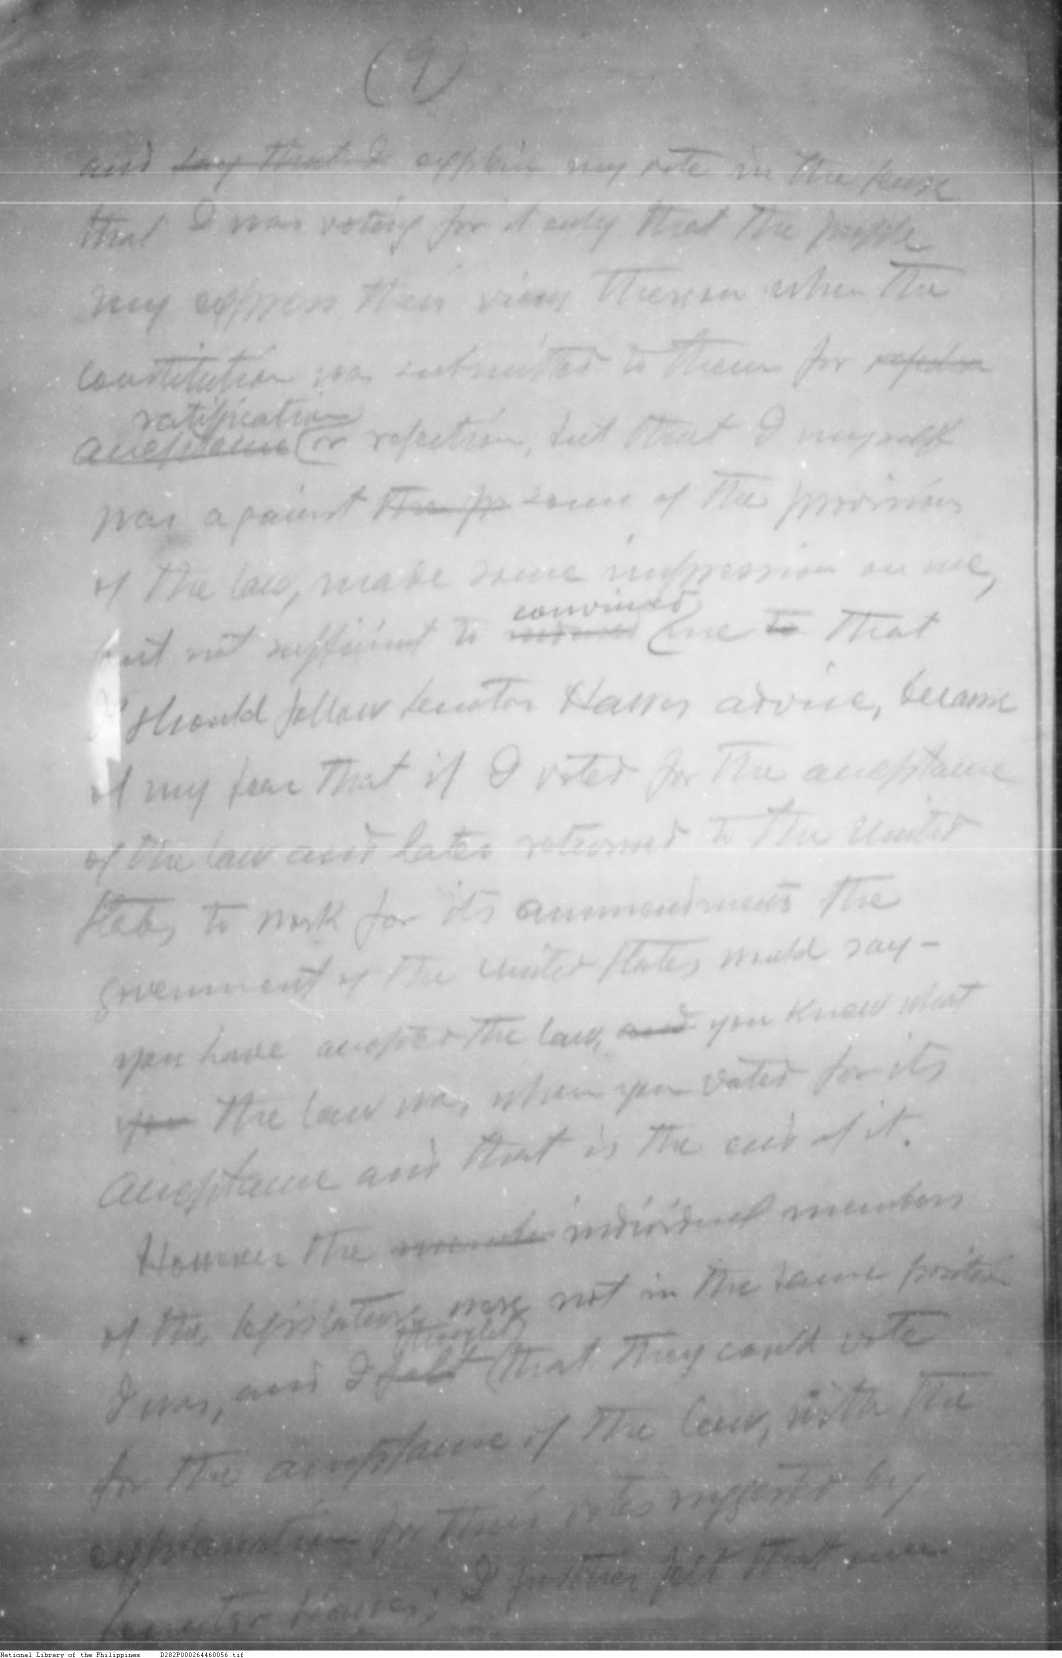 (9)
and say that I explain my vote in the sense
that I was voting for it only that the people
may express their views thereon when the
constitution was submitted to them for
ratification
acceptance or rejection, but that I myself
was against the pr some of the provisions
of the law, made some impression on me,
but not sufficient to convinced me to that
I should follow Senator Hawes advice, because
of my fear that if I voted for the acceptance
of the law and later returned to the United
States to work for its ammendments the
government of the United States would say -
you have accepted the law, and you knew what
you the law was when you voted for its
acceptance and that is the end of it.
However the individual members
of the legislature were not in the same position
thought
I was, and I felt that they could vote
for the acceptance of the law, with the
explanation for their votes suggested by
Senator Hawes; I further felt that
National Library of the Philippines D282P000264460056.tif